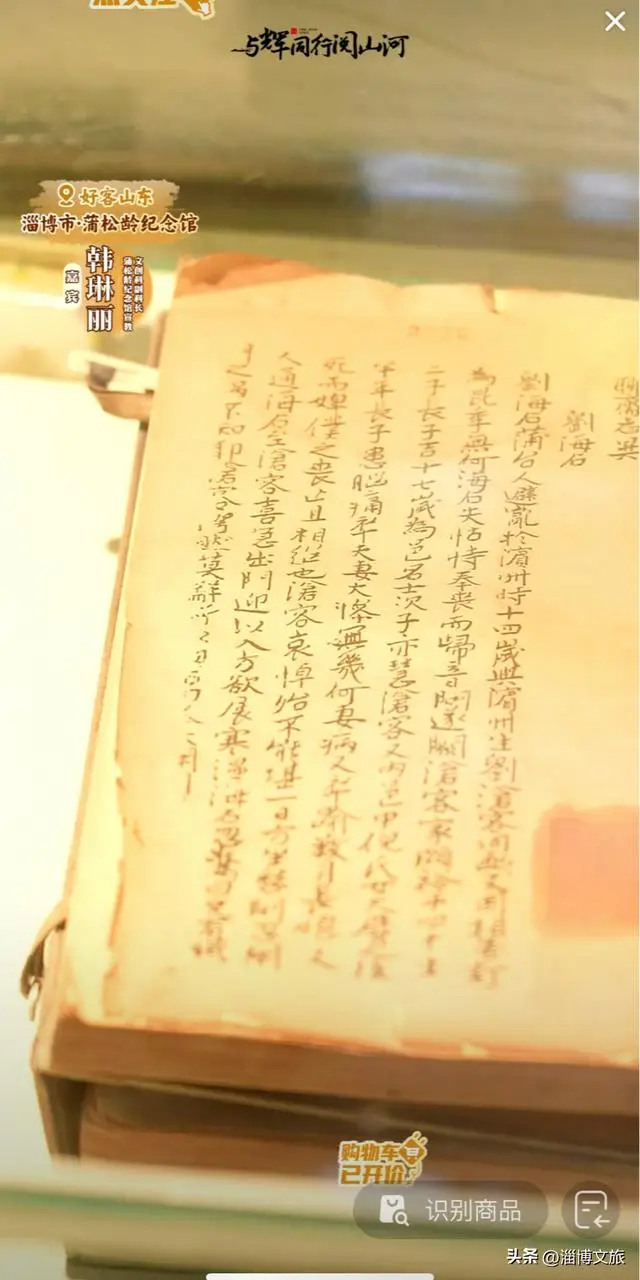 与辉同行阅山河
好客山东
淄博市·蒲松龄纪念馆
嘉宾
韩琳丽
蒲松龄纪念馆宣教
文创科副科长
聊齋志異
劉海石
劉海石蒲台人避亂於濱州時十四歲與濱州生劉滄客同函丈因相善訂
為昆季無何海石失怙恃奉喪而歸音問遂闕滄客家頗裕年四十生
二子長子吉十七歲為邑名士次子亦慧滄客又內邑中倪氏女大嬖之後
半年長子患腦痛卒夫妻大慘無幾何妻病又卒踰數月長媳又
死而婢僕之喪亡且相繼也滄客哀悼殆不能堪一日方坐愁間忽閽
人通海石至滄客喜急出門迎以入方欲展寒溫海石忽驚曰兄有滅
购物车
已开价
识别商品
头条 @淄博文旅